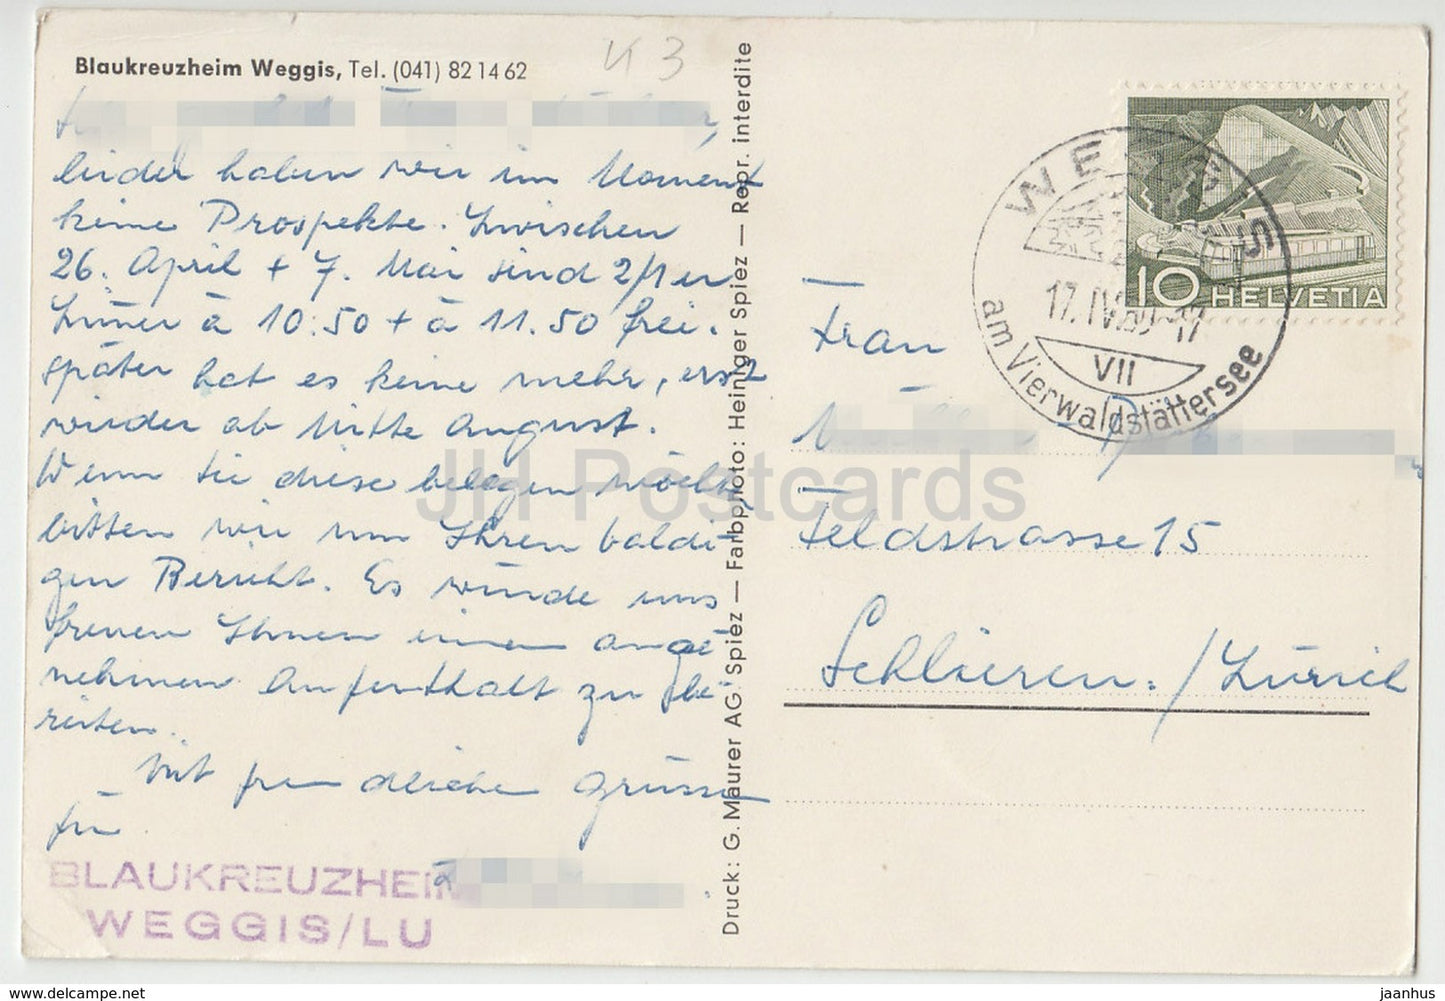 Blaukreuzheim Weggis, Tel. (041) 82 14 62
K 3
leider haben wir im Moment
keine Prospekte. Zwischen
26. April + 7. Mai sind 2/1 er
Zimer à 10.50 + à 11.50 frei.
später hat es keine mehr, erst
wieder ab Mitte August.
Wenn Sie diese belegen möcht,
bitten wir um Ihren baldi-
gen Bericht. Es würde uns
freuen Ihnen einen ange-
nehmen Aufenthalt zu be-
reiten.
Mit freundlichen Grüssen
für
BLAUKREUZHEIM
WEGGIS/LU
Druck: G. Maurer AG. Spiez — Farbphoto: Heiniger Spiez — Repr. interdite
10 HELVETIA
WEGGIS
17.IV.69-17
VII
am Vierwaldstättersee
Frau
Feldstrasse 15
Schlieren. / Zürich
JH Postcards
www.delcampe.net
jaanhus